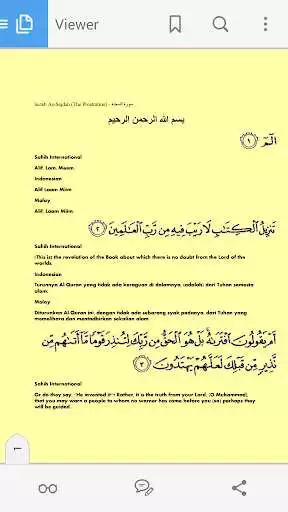 Viewer
Surah As-Sajdah (The Prostration) - سورة السجدة
بسم الله الرحمن الرحيم
الٓمٓ ١
Sahih International
Alif, Lam, Meem.
Indonesian
Alif Laam Miim
Malay
Alif, Laam, Miim.
تَنزِيلُ ٱلْكِتَٰبِ لَا رَيْبَ فِيهِ مِن رَّبِّ ٱلْعَٰلَمِينَ ٢
Sahih International
[This is] the revelation of the Book about which there is no doubt from the Lord of the
worlds.
Indonesian
Turunnya Al-Quran yang tidak ada keraguan di dalamnya, (adalah) dari Tuhan semesta
alam.
Malay
Diturunkan Al-Quran ini, dengan tidak ada sebarang syak padanya, dari Tuhan yang
memelihara dan mentadbirkan sekalian alam
أَمْ يَقُولُونَ ٱفْتَرَىٰهُ ۚ بَلْ هُوَ ٱلْحَقُّ مِن رَّبِّكَ لِتُنذِرَ قَوْمًا مَّآ أَتَىٰهُم مِّن
نَّذِيرٍ مِّن قَبْلِكَ لَعَلَّهُمْ يَهْتَدُونَ ٣
Sahih International
Or do they say, "He invented it"? Rather, it is the truth from your Lord, [O Muhammad],
that you may warn a people to whom no warner has come before you [so] perhaps they
will be guided.
1